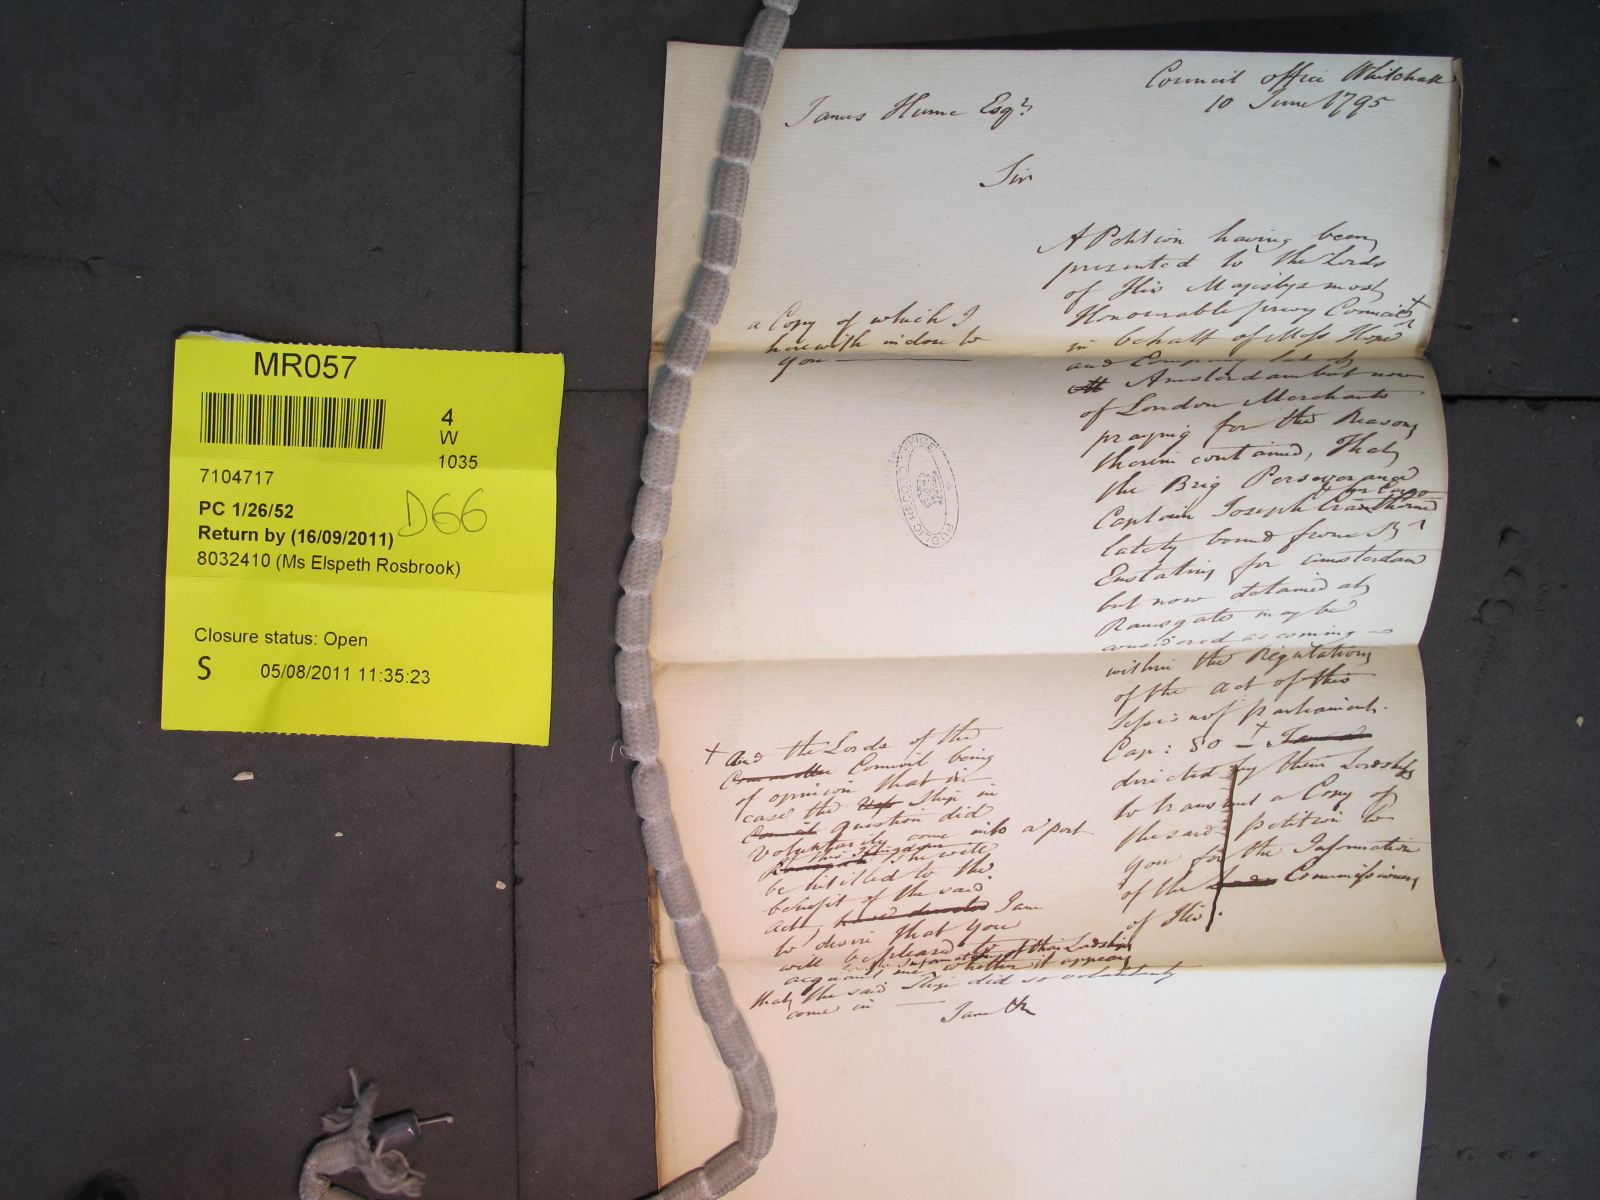 MR057
4
W
1035
7104717
PC 1/26/52
D66
Return by (16/09/2011)
8032410 (Ms Elspeth Rosbrook)
Closure status: Open
S 05/08/2011 11:35:23
Council office Whitehall
10 June 1795
James Hume Esqr
Sir
A Petition having been
presented to the Lords
of His Majestys most
Honourable privy Council +
a Copy of which I
herewith inclose to
you
in behalf of Mess Hope
and Company late of
Amsterdam but now
of London Merchants
praying for the Reasons
therein contained, That
the Brig Perseverance
& her Cargo
Captain Joseph Crawthorne
lately bound from St
Eustatius for Amsterdam
but now detained at
Ramsgate may be
considered as coming
within the Regulations
of the Act of this
Session of parliament.
Cap: 80 - +
directed by their Lordships
to transmit a Copy of
the said petition to
you for the Information
of the Commissioners
of His
+ And the Lords of the
Committee Council being
of opinion that in
case the Ship in
question did
voluntarily come into a port
of this Kingdom she will
be intitled to the
benefit of the said
Act, I am
to desire that you
will be pleased to
for the information of their Lordships
acquaint me whether it appears
that the said Ship did so voluntarily
come in
I am &c
PUBLIC RECORD OFFICE